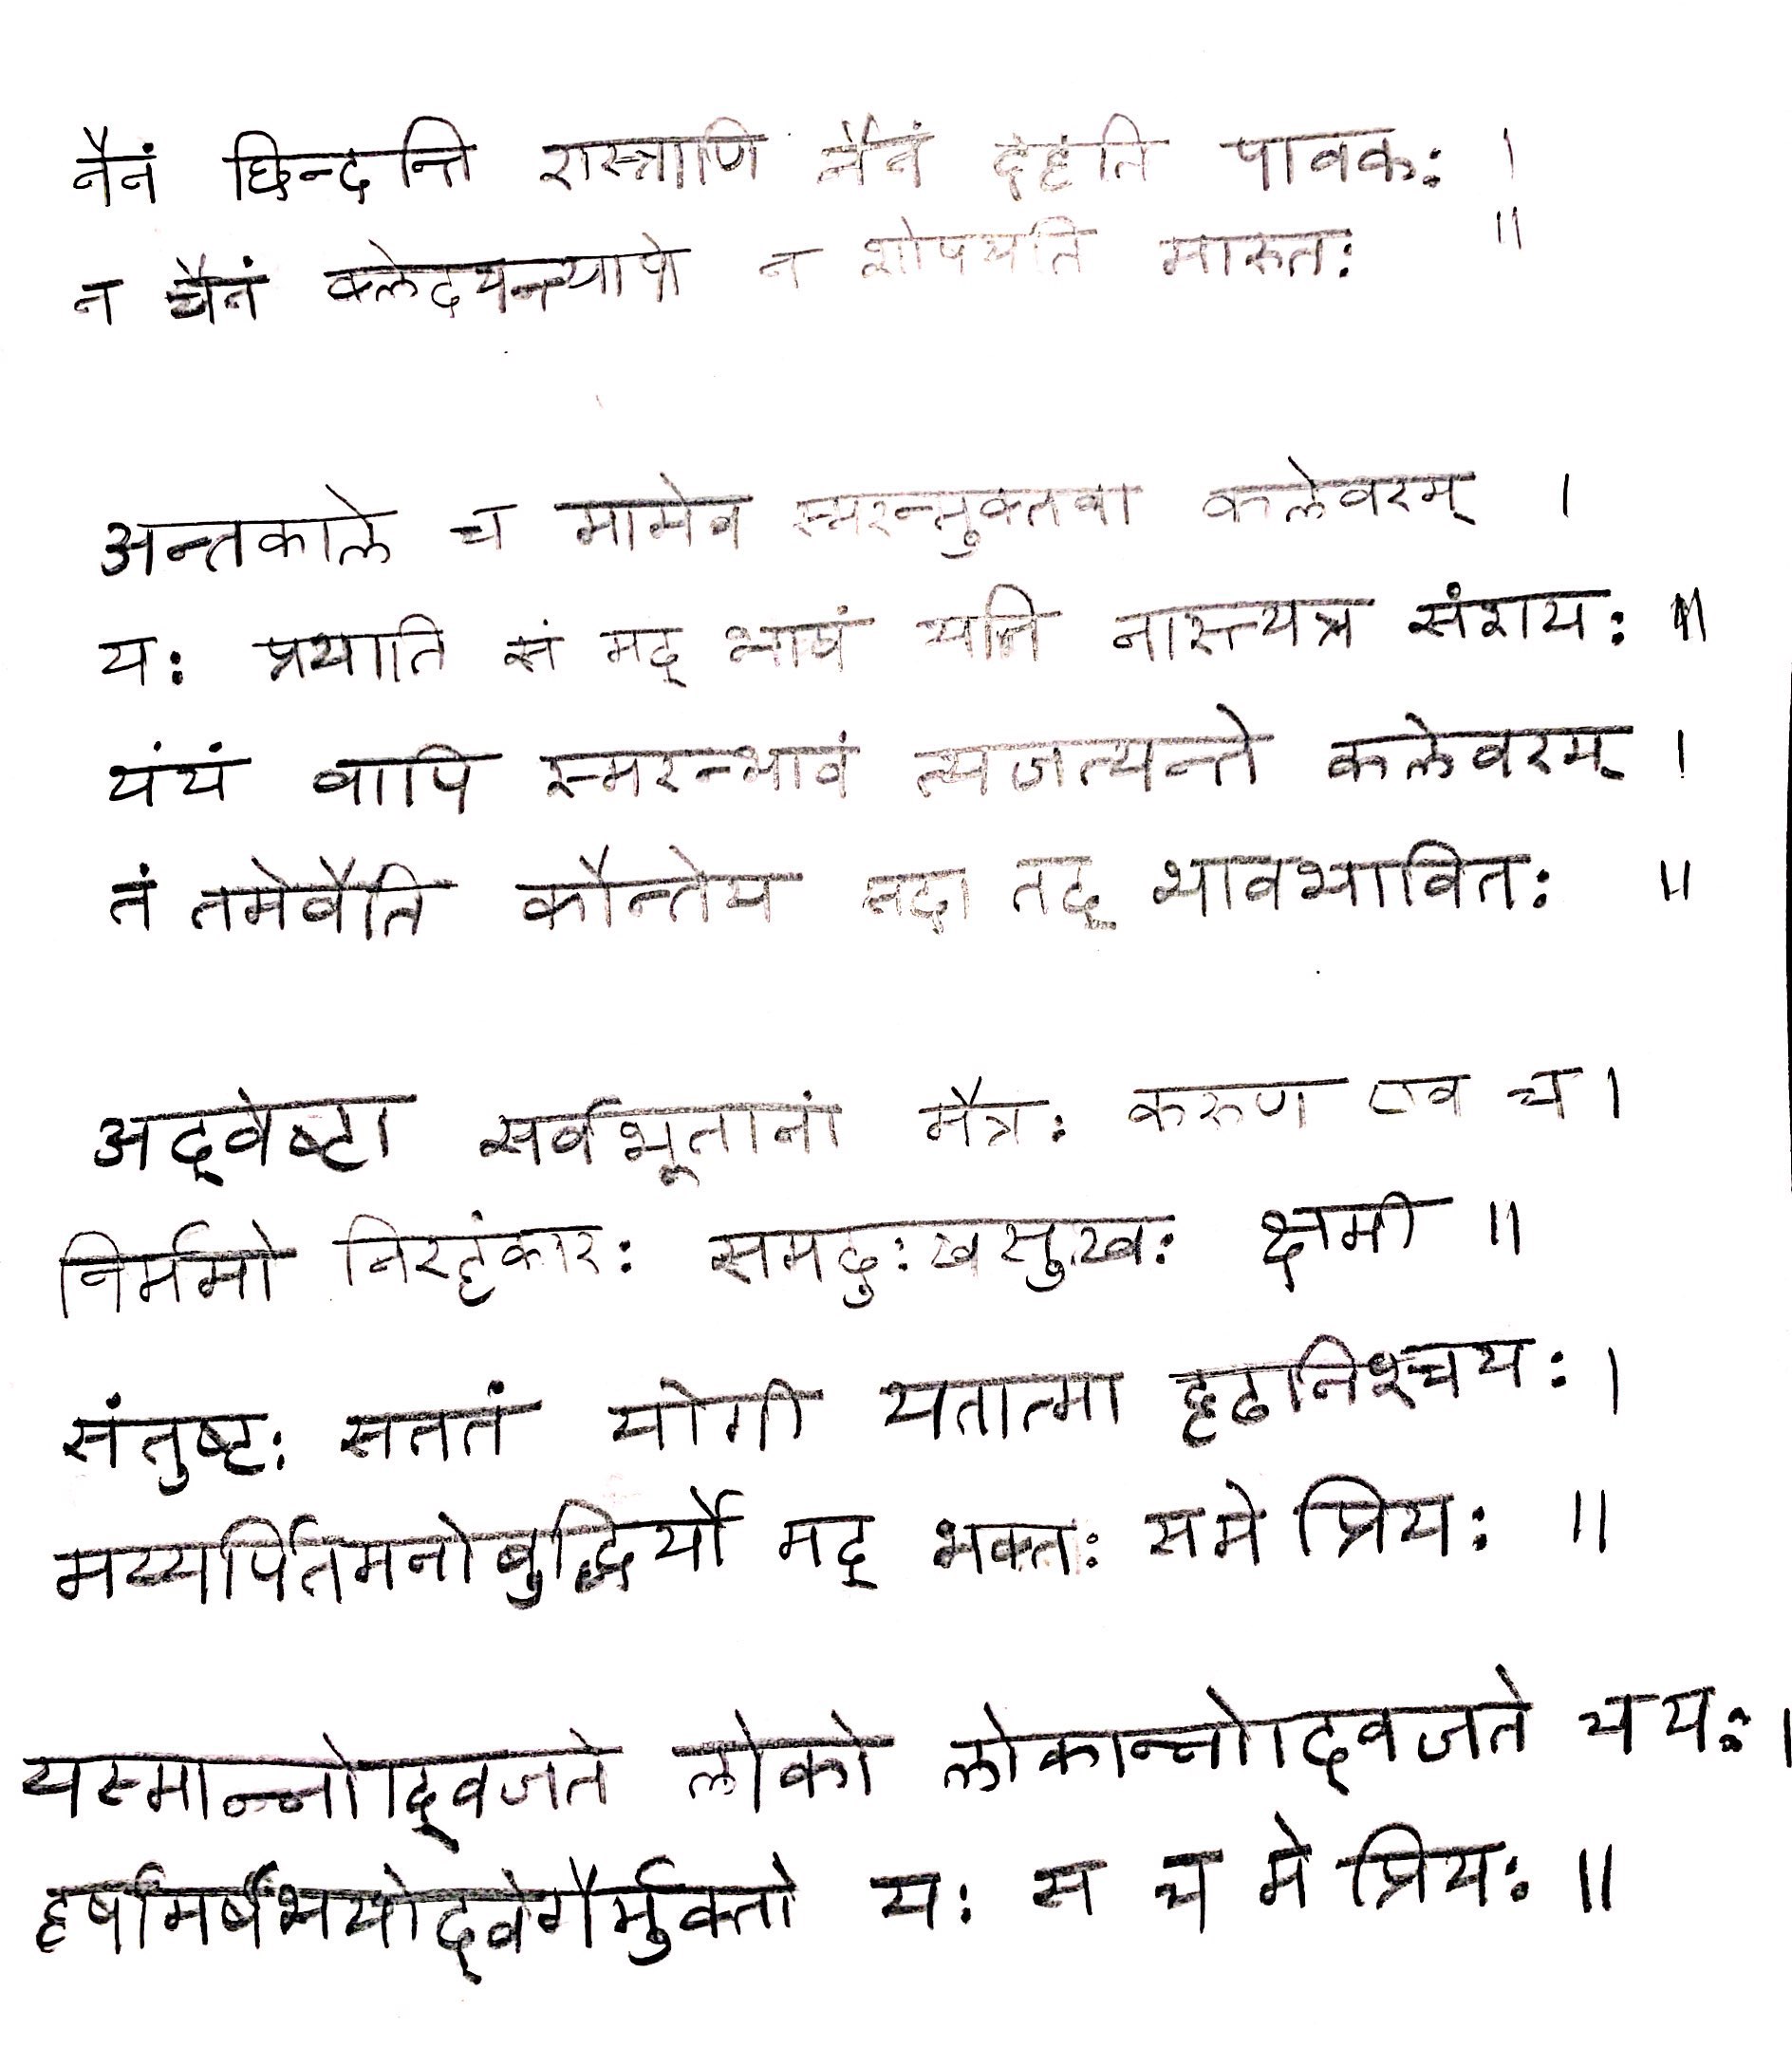 नैनं छिन्दन्ति शस्त्राणि नैनं दहति पावक: ।
न चैनं क्लेदयन्त्यापो न शोषयति मारुत: ॥
अन्तकाले च मामेव स्मरन्मुक्तवा कलेवरम् ।
य: प्रयाति सं मद् भावं याति नास्त्यत्र संशय: ॥
यंयं वापि स्मरन्भावं त्यजत्यन्ते कलेवरम् ।
तं तमेवैति कौन्तेय तदा तद् भावभावित: ॥
अद्वेष्टा सर्वभूतानां मैत्र: करुण एव च ।
निर्ममो निरहंकार: समदु:खसुख: क्षमी ॥
संतुष्ट: सततं योगी यतात्मा दृढनिश्चय: ।
मय्यर्पितमनोबुद्धिर्यो मद् भक्त: समे प्रिय: ॥
यस्मान्नोद्वजते लोको लोकान्नोद्वजते चय: ।
हर्षामर्षभयोद्वेगैर्मुक्तो य: स च मे प्रिय: ॥